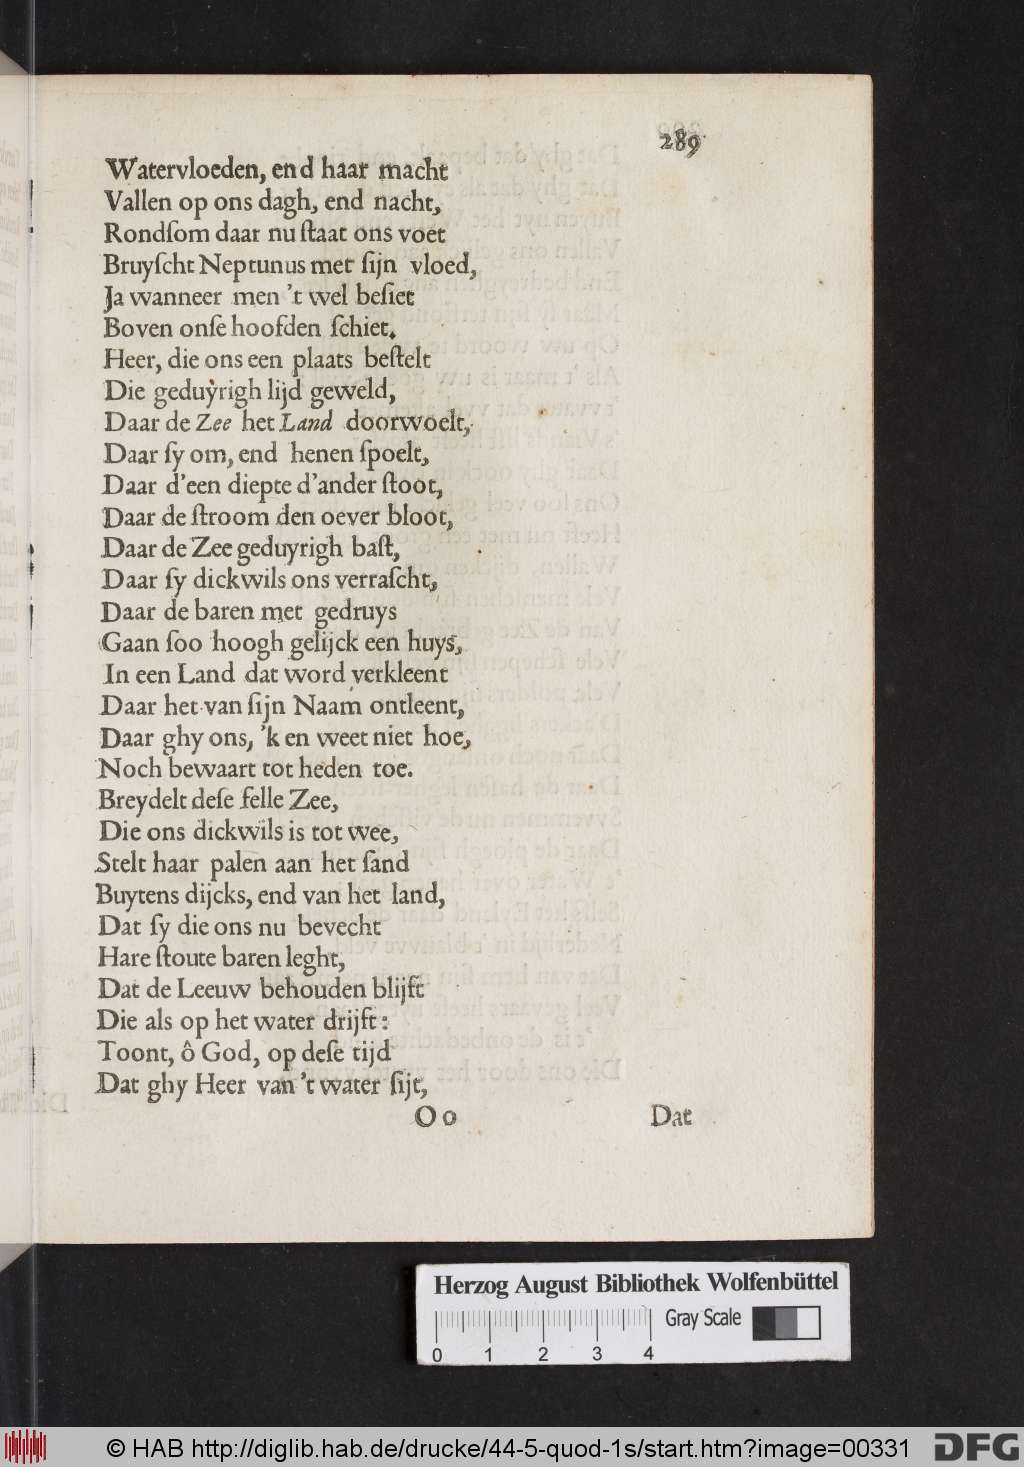 289
Watervloeden, end haar macht
Vallen op ons dagh, end nacht,
Rondſom daar nu ſtaat ons voet
Bruyſcht Neptunus met ſijn vloed,
Ja wanneer men 't wel beſiet
Boven onſe hoofden ſchiet.
Heer, die ons een plaats beſtelt
Die geduÿrigh lijd geweld,
Daar de Zee het Land doorwoelt,
Daar ſy om, end henen ſpoelt,
Daar d'een diepte d'ander ſtoot,
Daar de ſtroom den oever bloot,
Daar de Zee geduyrigh baſt,
Daar ſy dickwils ons verraſcht,
Daar de baren met gedruys
Gaan ſoo hoogh gelijck een huys,
In een Land dat word verkleent
Daar het van ſijn Naam ontleent,
Daar ghy ons, 'k en weet niet hoe,
Noch bewaart tot heden toe.
Breydelt deſe felle Zee,
Die ons dickwils is tot wee,
Stelt haar palen aan het ſand
Buytens dijcks, end van het land,
Dat ſy die ons nu bevecht
Hare ſtoute baren leght,
Dat de Leeuw behouden blijft
Die als op het water drijft:
Toont, ô God, op deſe tijd
Dat ghy Heer van 't water ſijt,
Oo Dat
Herzog August Bibliothek Wolfenbüttel
0 1 2 3 4 Gray Scale
© HAB http://diglib.hab.de/drucke/44-5-quod-1s/start.htm?image=00331 DFG